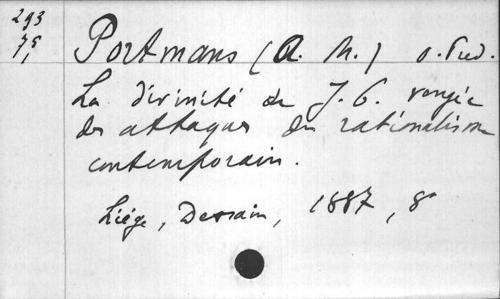 293
75,
Portmans (A. M.) o. Pred.
La divinité de J. C. vengée
des attaques du rationalisme
contemporain.
Liége, Dessain, 1887, 8°